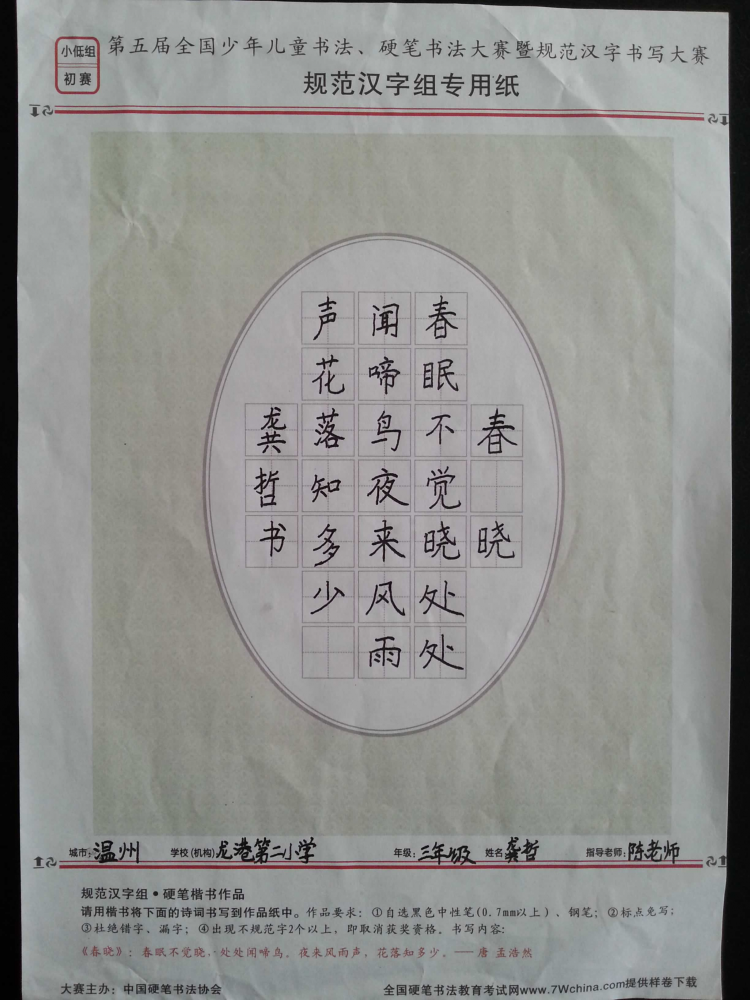 小低组
初赛
第五届全国少年儿童书法、硬笔书法大赛暨规范汉字书写大赛
规范汉字组专用纸
春晓
春眠不觉晓处处
闻啼鸟夜来风雨
声花落知多少
龚哲书
城市:温州 学校(机构)龙港第二小学 年级:三年级 姓名龚哲 指导老师:陈老师
规范汉字组•硬笔楷书作品
请用楷书将下面的诗词书写到作品纸中。作品要求：①自选黑色中性笔(0.7mm以上)、钢笔；②标点免写；
③杜绝错字、漏字；④出现不规范字2个以上，即取消获奖资格。书写内容：
《春晓》：春眠不觉晓，处处闻啼鸟。夜来风雨声，花落知多少。——唐 孟浩然
大赛主办：中国硬笔书法协会 全国硬笔书法教育考试网www.7Wchina.com提供样卷下载